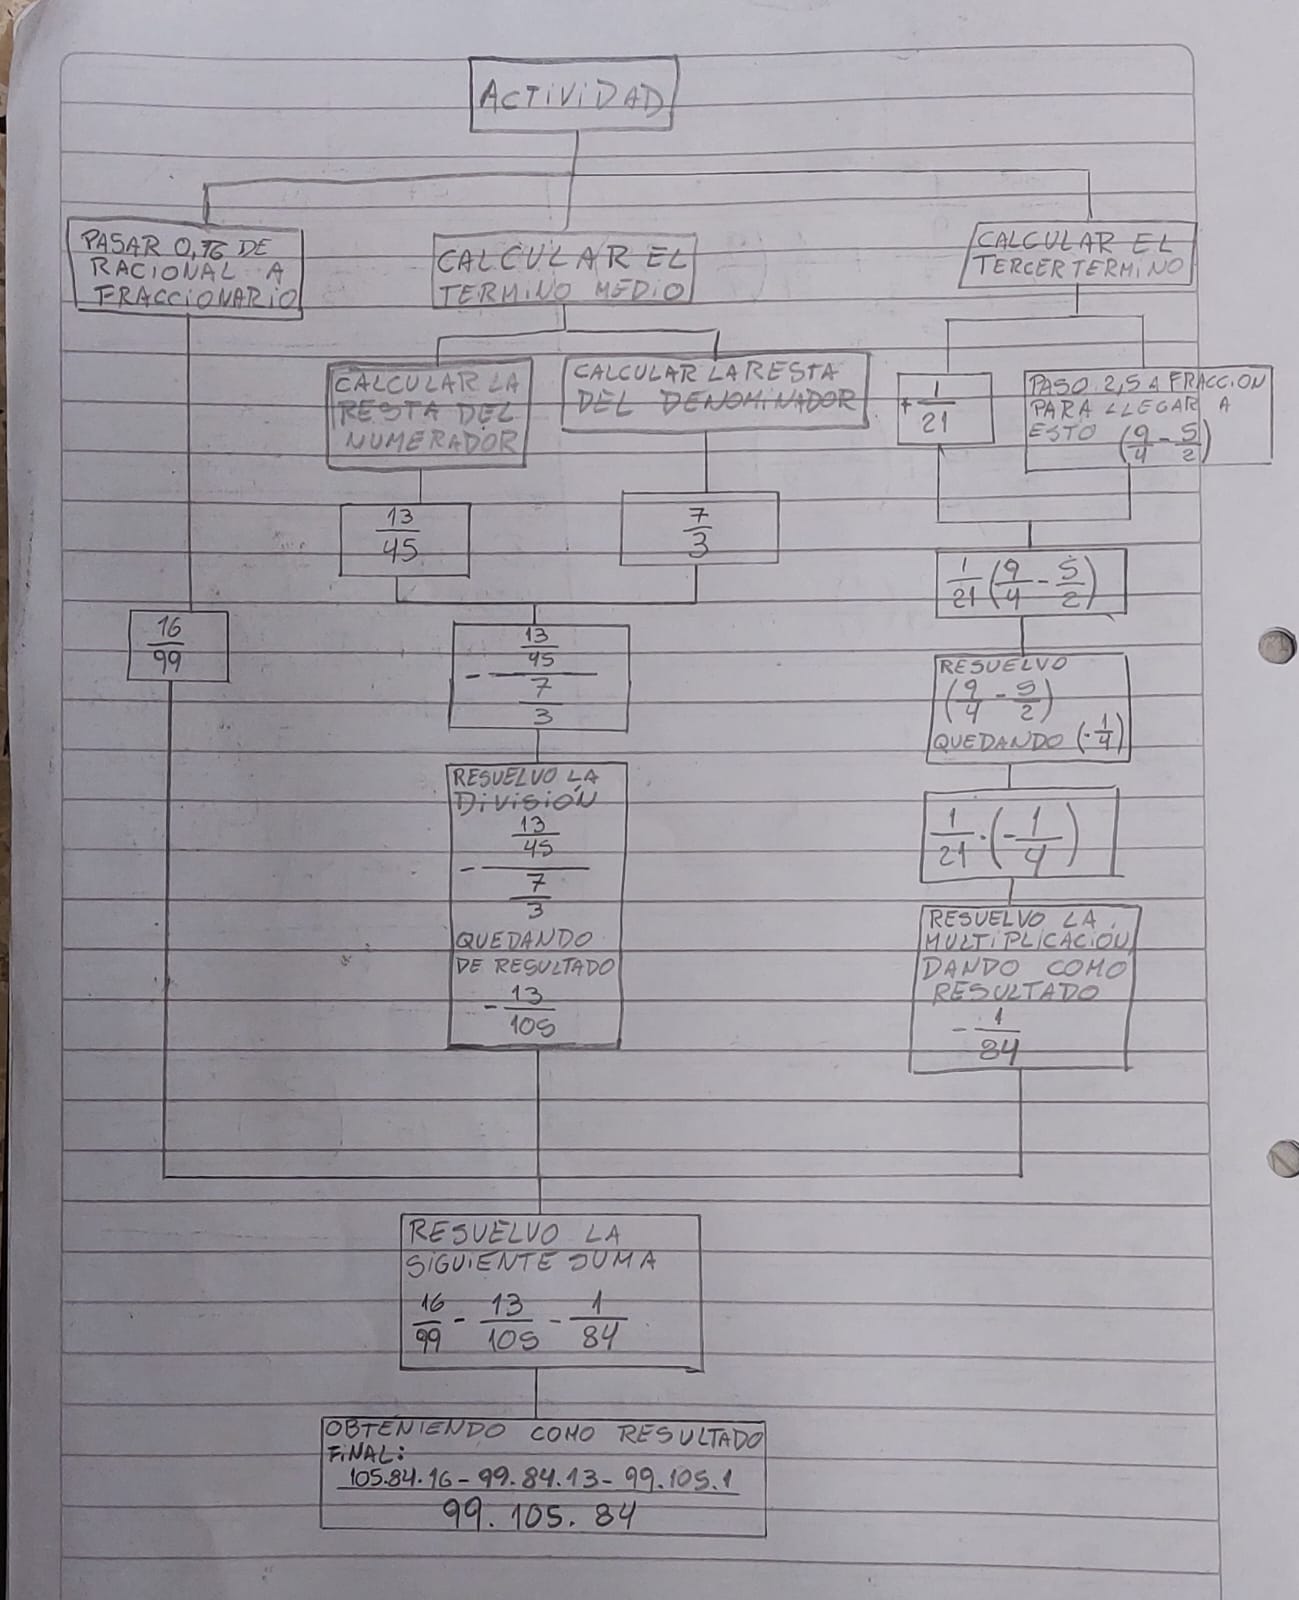 ACTIVIDAD
PASAR 0,16 DE
RACIONAL A
FRACCIONARIO
16
99
CALCULAR EL
TERMINO MEDIO
CALCULAR LA
RESTA DEL
NUMERADOR
13
45
CALCULAR LA RESTA
DEL DENOMINADOR
7
3
13
45
-
7
3
RESUELVO LA
DIVISIÓN
13
45
-
7
3
QUEDANDO
DE RESULTADO
- 13
105
CALCULAR EL
TERCER TERMINO
+ 1
21
PASO 2,5 A FRACCION
PARA LLEGAR A
ESTO (9/4 - 5/2)
1/21 (9/4 - 5/2)
RESUELVO
(9/4 - 5/2)
QUEDANDO (-1/4)
1/21 · (-1/4)
RESUELVO LA
MULTIPLICACIÓN
DANDO COMO
RESULTADO
- 1
84
RESUELVO LA
SIGUIENTE SUMA
16/99 - 13/105 - 1/84
OBTENIENDO COMO RESULTADO
FINAL:
105.84.16 - 99.84.13 - 99.105.1
99.105.84